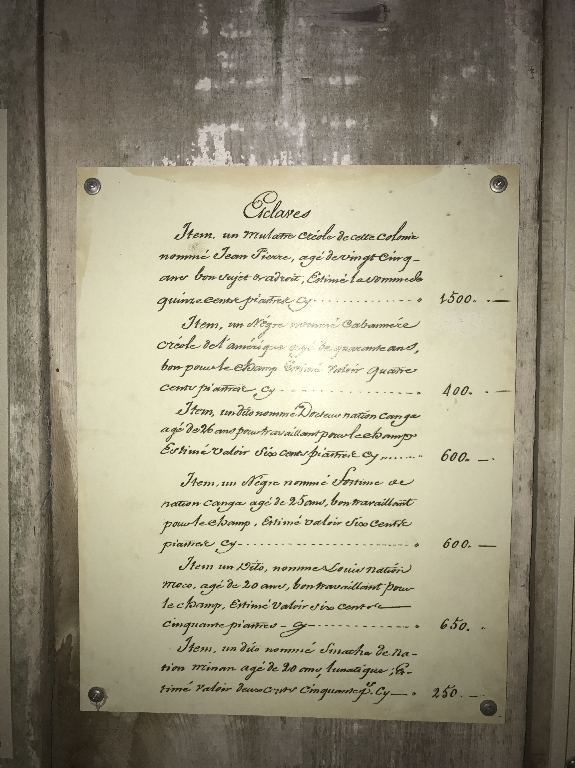 Esclaves
Item, un Mulatre créole de cette Colonie
nommé Jean Pierre, agé de vingt Cinq-
ans bon sujet & adroit, Estimé la somme de
quinze Cents piastres Cy 1500. —
Item, un Négre nommé Cabannére
créole de l'amérique agé de quarante ans,
bon pour le champ Estimé valoir quatre
Cents piastres Cy 400. —
Item, un dito nommé Docteur nation Canga
agé de 26 ans pour travaillant pour le champ
Estimé valoir Six Cents piastres Cy 600. —
Item, un Négre nommé de
nation Canga agé de 25 ans, bon travaillant
pour le champ, Estimé valoir Six Cents
piastres Cy 600. —
Item un Dito, nommé Louis nation
Moco, agé de 20 ans, bon travaillant pour
le champ, Estimé valoir Six Cents
Cinquante piastres - Cy 650.
Item, un dito nommé de na-
tion Minan agé de 20 ans, lunatique, Es-
timé valoir deux Cents Cinquante p.s Cy 250. —